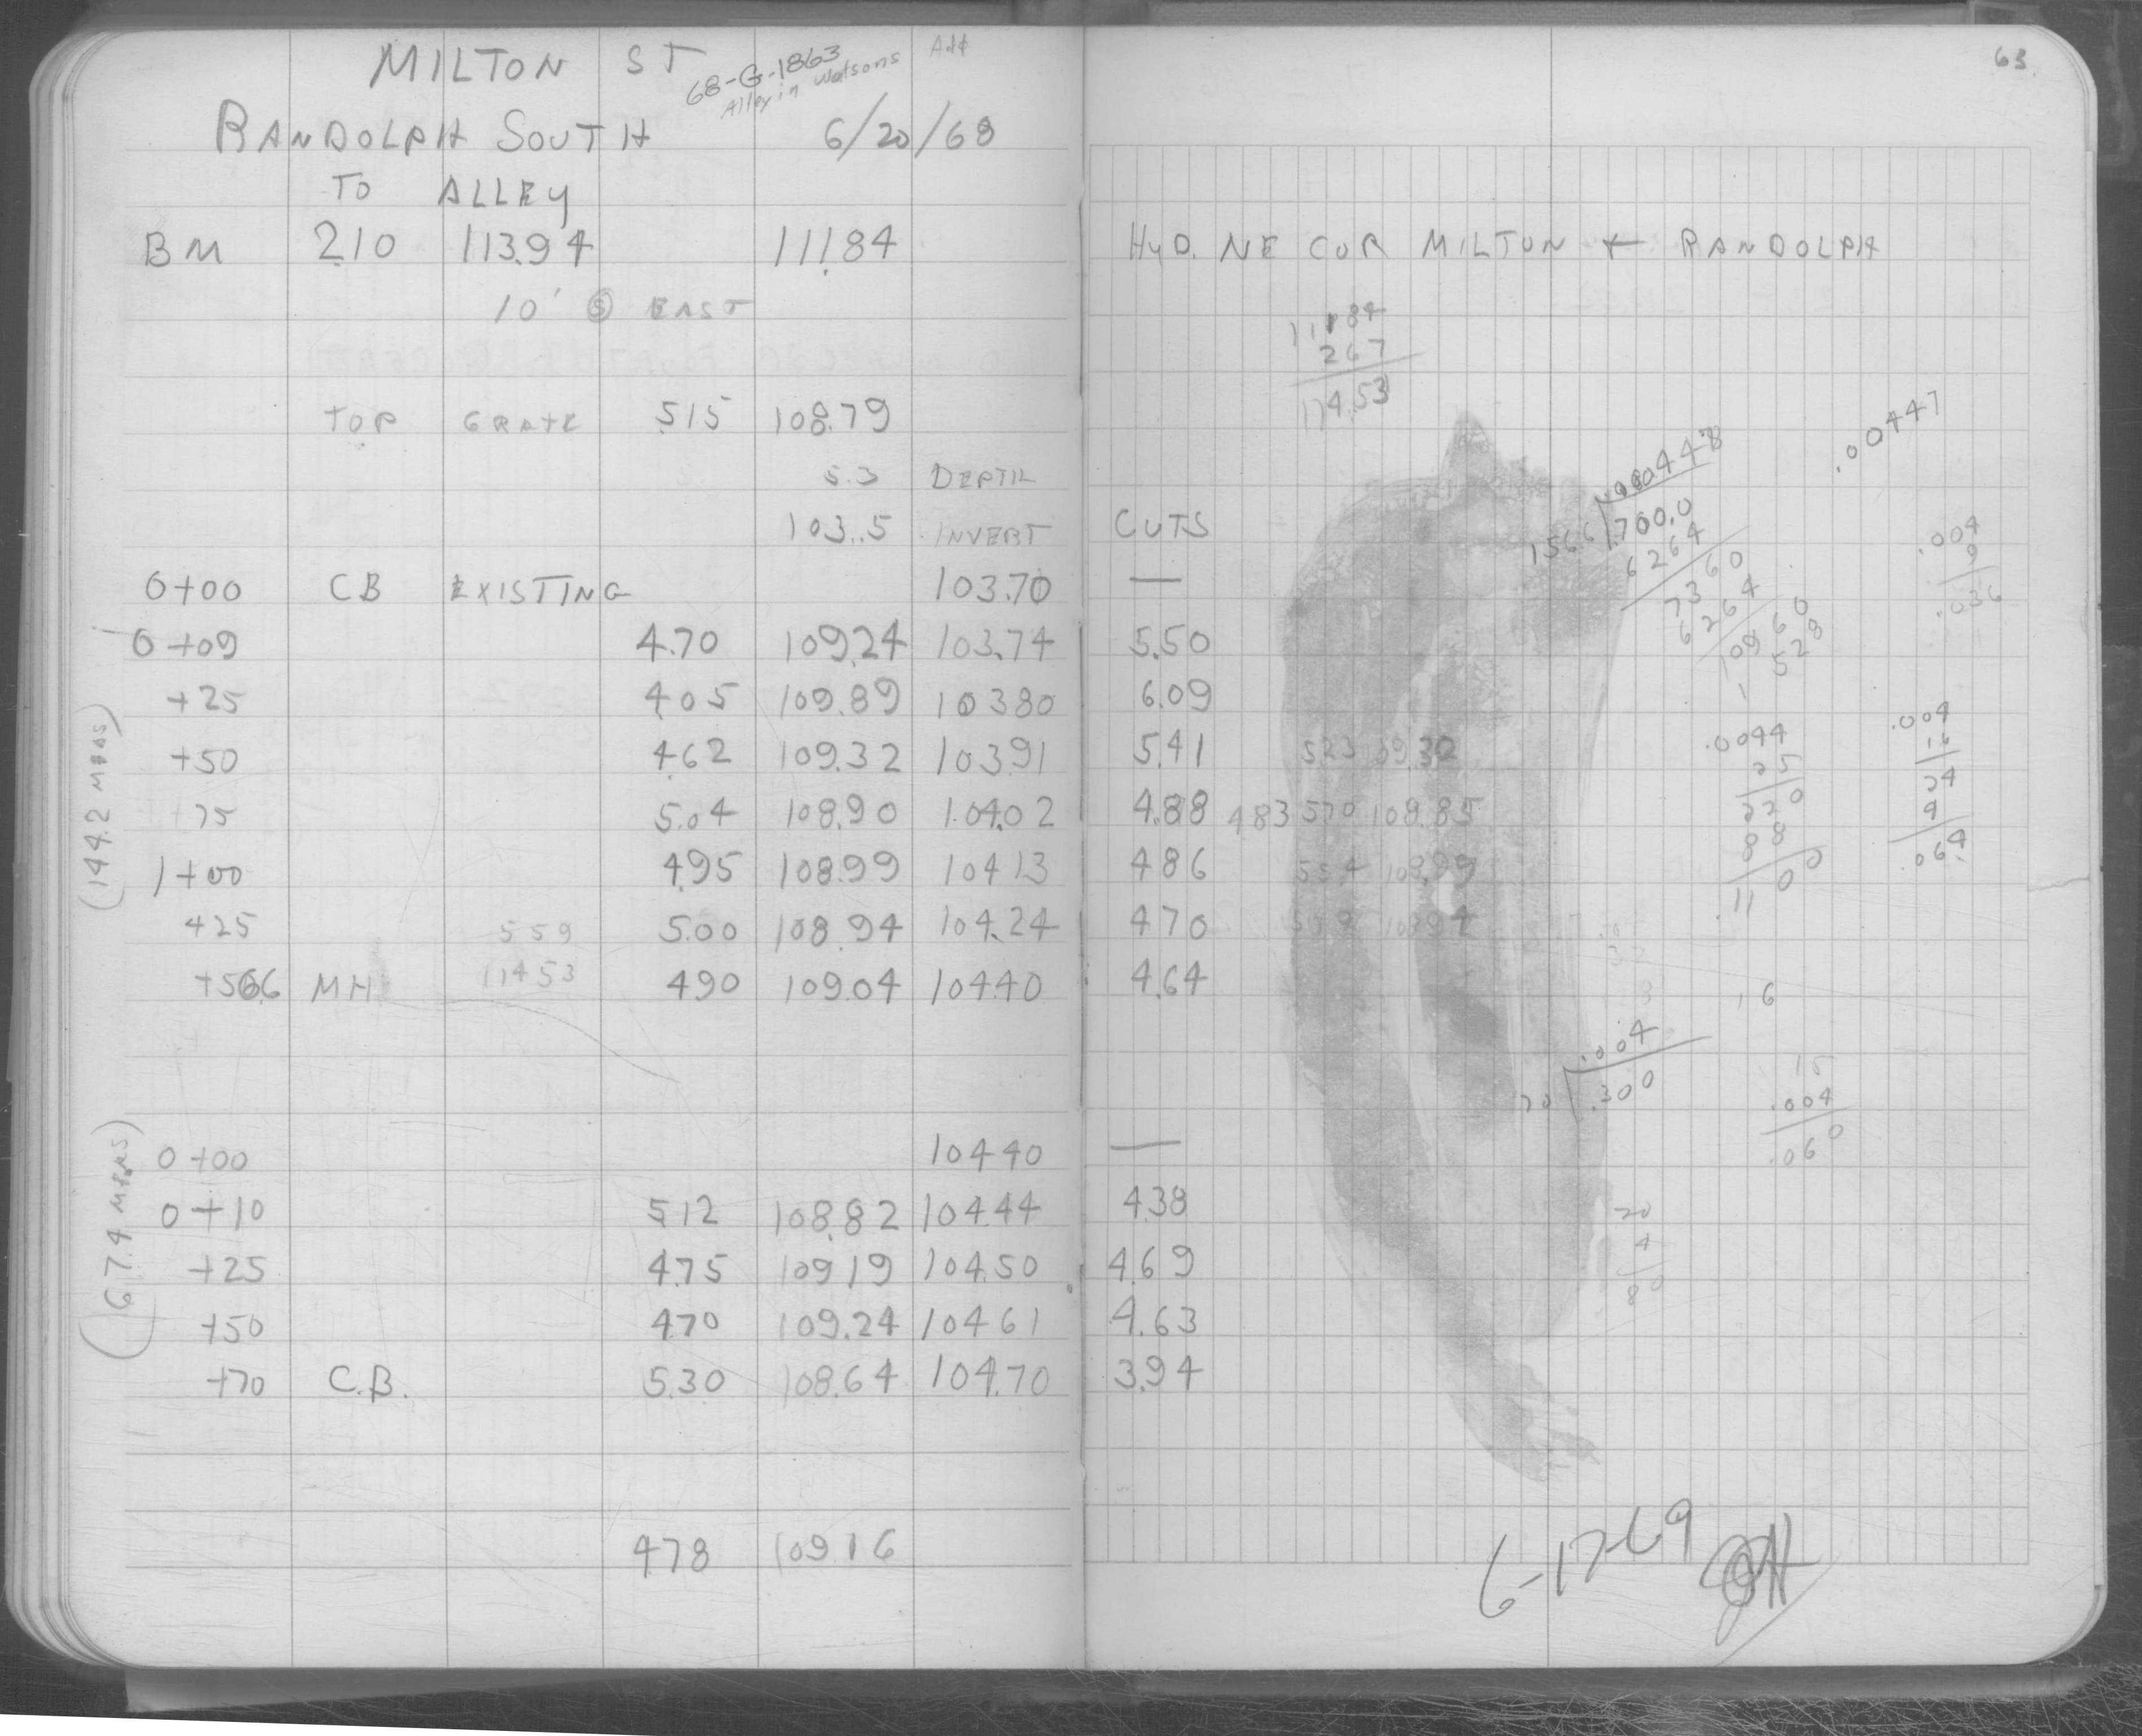 MILTON ST
68-G-1863
Alley in Watsons Add
RANDOLPH SOUTH 6/20/68
TO ALLEY
BM 2.10 113.94 111.84
10' @ EAST
TOP GRATE 5.15 108.79
5.3 DEPTH
103.5 INVERT
0+00 CB EXISTING 103.70
0+09 4.70 109.24 103.74
+25 4.05 109.89 103.80
+50 4.62 109.32 103.91
+75 5.04 108.90 104.02
1+00 4.95 108.99 104.13
+25 559 5.00 108.94 104.24
+56.6 MH 114.53 4.90 109.04 104.40
0+00 104.40
0+10 5.12 108.82 104.44
+25 4.75 109.19 104.50
+50 4.70 109.24 104.61
+70 C.B. 5.30 108.64 104.70
4.78 109.16
(144.2 MEAS)
(67.4 MEAS)
63
HYD. NE COR MILTON + RANDOLPH
111.84
2.67
114.53
CUTS
—
5.50
6.09
5.41 523 109.30
4.88 4.83 570 108.83
4.86 554 108.99
4.70 108.94
4.64
—
4.38
4.69
4.63
3.94
.00447
.00448
156.6 .700.0
6264
7360
6264
.004
9
.036
.0044
25
220
88
.1100
.004
16
24
4
.064
.16
.004
70 .300
15
.004
.060
20
4
80
6-17-69